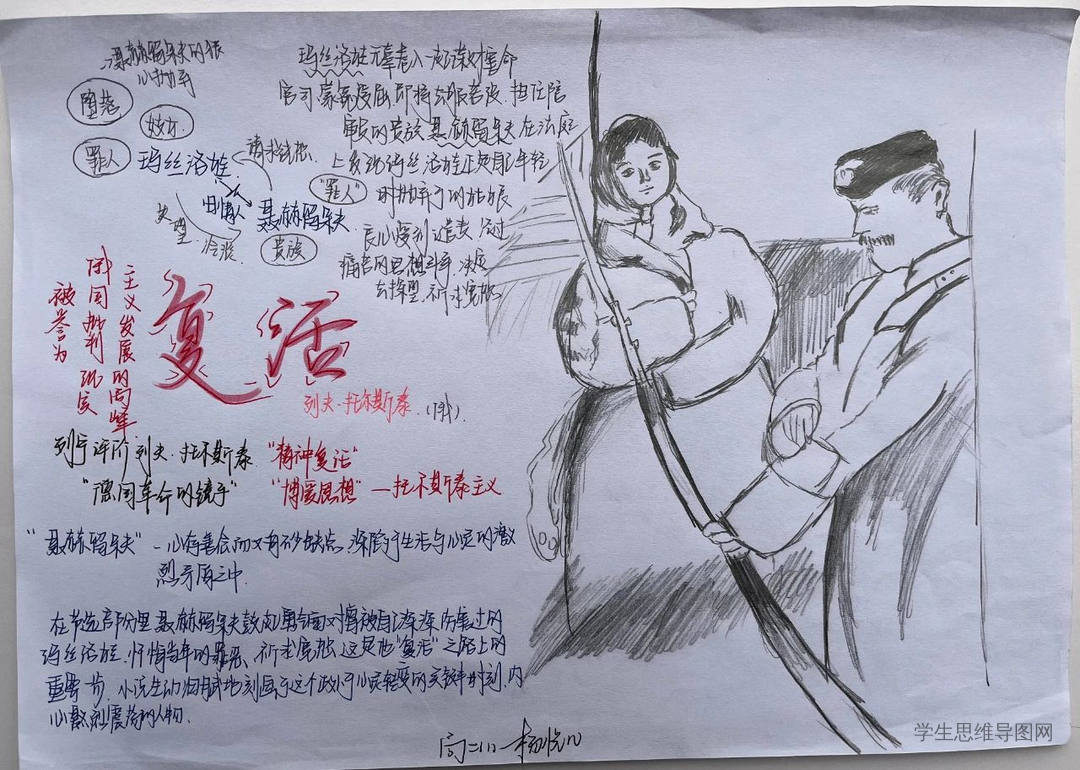 聂赫留朵夫的狠
心抛弃
堕落
妓女
罪人
玛丝洛娃
请求饶恕
"罪人"
旧情人
聂赫留朵夫
失望
冷漠
贵族
玛丝洛娃无辜卷入一起谋财害命
官司,蒙冤受屈,即将公服苦役.担任陪
审员的贵族聂赫留朵夫在法庭
上发现玛丝洛娃正是自己年轻
时抛弃了的姑娘
良心受到谴责.经过
痛苦的思想斗争,决定
去探望,祈求宽恕
被誉为
俄国批判现实
主义发展的高峰
复活
列夫·托尔斯泰.(俄).
列宁评价列夫.托尔斯泰 "精神复活"
"俄国革命的镜子" "博爱思想"—托尔斯泰主义
"聂赫留朵夫"-心存善念而又有不少缺点,深陷于生活与心灵的激
烈矛盾之中.
在节选部分里聂赫留朵夫鼓起勇气面对曾被自己深深伤害过的
玛丝洛娃.忏悔当年的罪恶、祈求宽恕,这是他"复活"之路上的
重要一步.小说生动细腻地刻画了这个处于心灵转变的关键时刻,内
心激烈震荡的人物.
高二(1)—杨悦
学生思维导图网